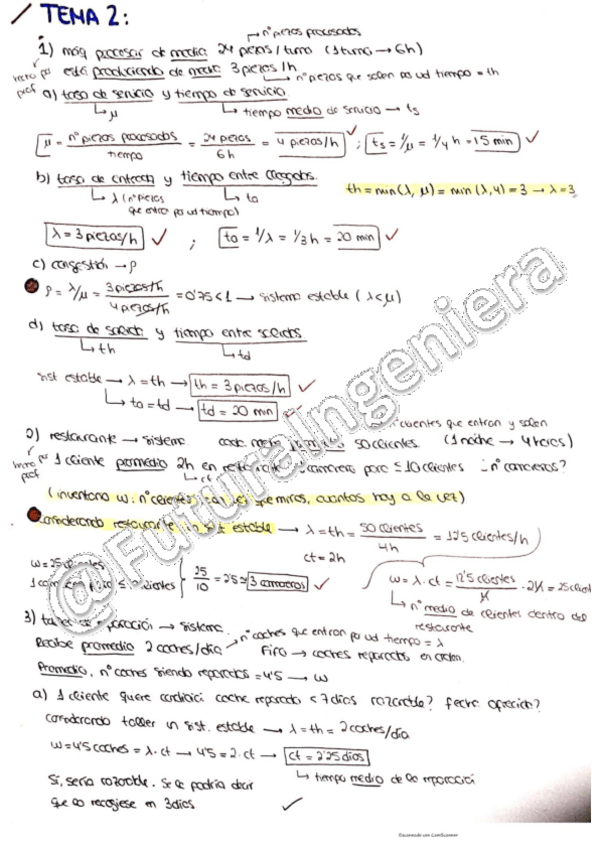 TEMA 2:
nº piezas procesadas
1) máq procesar de media 24 piezas/turno (1 turno → 6h)
está produciendo de media 3 piezas/h
nº piezas que salen por ud tiempo = th
a) tasa de servicio y tiempo de servicio
μ
tiempo medio de servicio → ts
μ = nº piezas procesadas / tiempo = 24 piezas / 6h = 4 piezas/h ✓ ; ts = 1/μ = 1/4 h = 15 min ✓
b) tasa de entrada y tiempo entre llegadas.
λ (nº piezas que entran por ud tiempo)
ta
th = min(λ, μ) = min (λ, 4) = 3 → λ = 3
λ = 3 piezas/h ✓ ; ta = 1/λ = 1/3 h = 20 min ✓
c) congestión → ρ
ρ = λ/μ = 3 piezas/h / 4 piezas/h = 0'75 < 1 → sistema estable (λ < μ)
d) tasa de salida y tiempo entre salidas
th
td
sist estable → λ = th → th = 3 piezas/h ✓
ta = td → td = 20 min ✓
clientes que entran y salen
2) restaurante → sistema cada 50 clientes (1 noche → 4 horas)
1 cliente promedio 2h en camarero para ≤ 10 clientes nº camareros?
ct
(inventario w: nº clientes cuantos hay a la vez)
Considerando restaurante sist estable → λ = th = 50 clientes / 4h = 12'5 clientes/h
ct = 2h
w = 25 clientes
25/10 = 2'5 ≈ 3 camareros ✓
w = λ · ct = 12'5 clientes/h · 2h = 25 clientes
nº medio de clientes dentro del restaurante
3) taller reparación → sistema.
Recibe promedio 2 coches/día → nº coches que entran por ud tiempo = λ
Fifo → coches reparados en orden.
Promedio, nº coches siendo reparados = 4'5 → w
a) 1 cliente quiere coche reparado < 7 días razonable? fecha
Considerando taller un sist. estable → λ = th = 2 coches/día
w = 4'5 coches = λ · ct → 4'5 = 2 · ct → ct = 2'25 días
tiempo medio de la reparación
Sí, sería razonable. Se le podría decir
que lo recogiese en 3 días ✓
@FuturaIngeniera
Escaneado con CamScanner